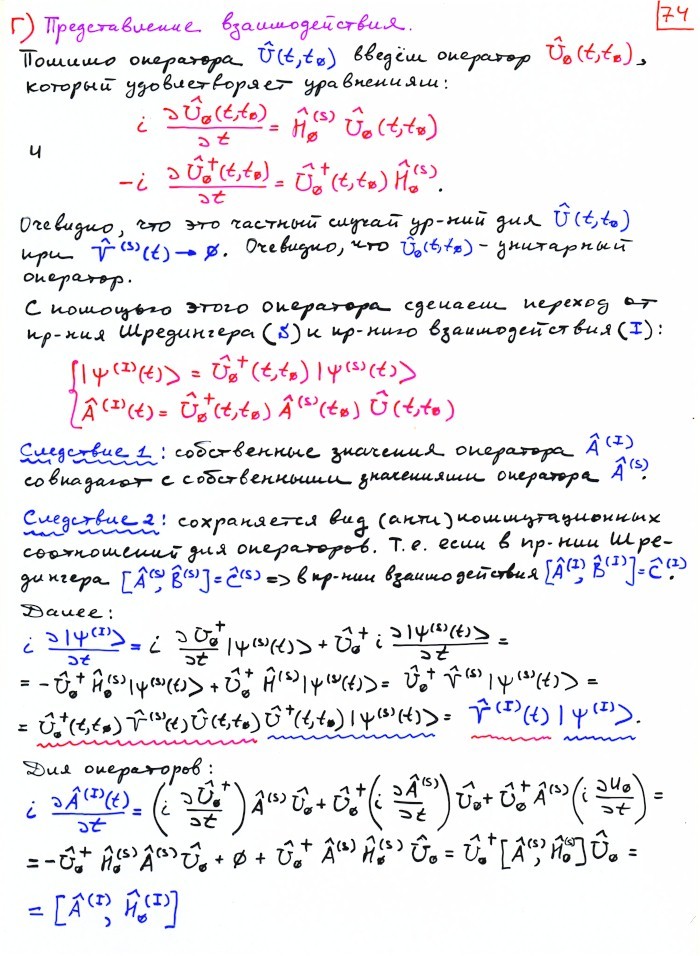 74
Г) Представление взаимодействия.
Помимо оператора Û(t,t₀) введём оператор Û₀(t,t₀),
который удовлетворяет уравнениям:
i ∂Û₀(t,t₀)/∂t = Ĥ₀⁽ˢ⁾ Û₀(t,t₀)
и
-i ∂Û₀⁺(t,t₀)/∂t = Û₀⁺(t,t₀) Ĥ₀⁽ˢ⁾.
Очевидно, что это частный случай ур-ний для Û(t,t₀)
при V̂⁽ˢ⁾(t) → 0. Очевидно, что Û₀(t,t₀) – унитарный
оператор.
С помощью этого оператора сделаем переход от
пр-ния Шредингера (S) к пр-нию взаимодействия (I):
{ |Ψ⁽ᴵ⁾(t)> = Û₀⁺(t,t₀) |Ψ⁽ˢ⁾(t)>
Â⁽ᴵ⁾(t) = Û₀⁺(t,t₀) Â⁽ˢ⁾(t₀) Û(t,t₀)
Следствие 1: собственные значения оператора Â⁽ᴵ⁾
совпадают с собственными значениями оператора Â⁽ˢ⁾.
Следствие 2: сохраняется вид (анти)коммутационных
соотношений для операторов. Т.е. если в пр-нии Шре-
дингера [Â⁽ˢ⁾, B̂⁽ˢ⁾] = Ĉ⁽ˢ⁾ => в пр-нии взаимодействия [Â⁽ᴵ⁾, B̂⁽ᴵ⁾] = Ĉ⁽ᴵ⁾.
Далее:
i ∂|Ψ⁽ᴵ⁾>/∂t = i ∂Û₀⁺/∂t |Ψ⁽ˢ⁾(t)> + Û₀⁺ i ∂|Ψ⁽ˢ⁾(t)>/∂t =
= -Û₀⁺ Ĥ₀⁽ˢ⁾ |Ψ⁽ˢ⁾(t)> + Û₀⁺ Ĥ⁽ˢ⁾ |Ψ⁽ˢ⁾(t)> = Û₀⁺ V̂⁽ˢ⁾ |Ψ⁽ˢ⁾(t)> =
= Û₀⁺(t,t₀) V̂⁽ˢ⁾(t) Û(t,t₀) Û⁺(t,t₀) |Ψ⁽ˢ⁾(t)> = V̂⁽ᴵ⁾(t) |Ψ⁽ᴵ⁾>.
Для операторов:
i ∂Â⁽ᴵ⁾(t)/∂t = (i ∂Û₀⁺/∂t) Â⁽ˢ⁾ Û₀ + Û₀⁺ (i ∂Â⁽ˢ⁾/∂t) Û₀ + Û₀⁺ Â⁽ˢ⁾ (i ∂U₀/∂t) =
= -Û₀⁺ Ĥ₀⁽ˢ⁾ Â⁽ˢ⁾ Û₀ + 0 + Û₀⁺ Â⁽ˢ⁾ Ĥ₀⁽ˢ⁾ Û₀ = Û₀⁺ [Â⁽ˢ⁾, Ĥ₀⁽ˢ⁾] Û₀ =
= [Â⁽ᴵ⁾, Ĥ₀⁽ᴵ⁾]